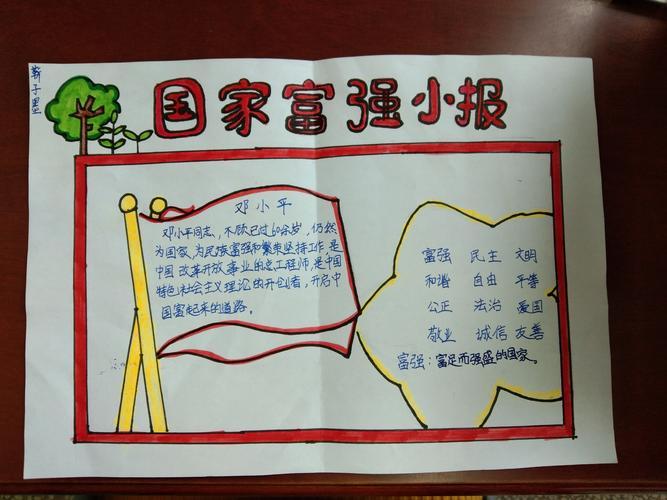 靳子墨
国家富强小报
邓小平
邓小平同志，不顾已过60余岁，仍然
为国家，为民族富强和繁荣坚持工作是
中国改革开放事业的总工程师，是中国
特色社会主义理论的开创者，开启中
国富起来的道路。
富强 民主 文明
和谐 自由 平等
公正 法治 爱国
敬业 诚信 友善
富强：富足而强盛的国家。